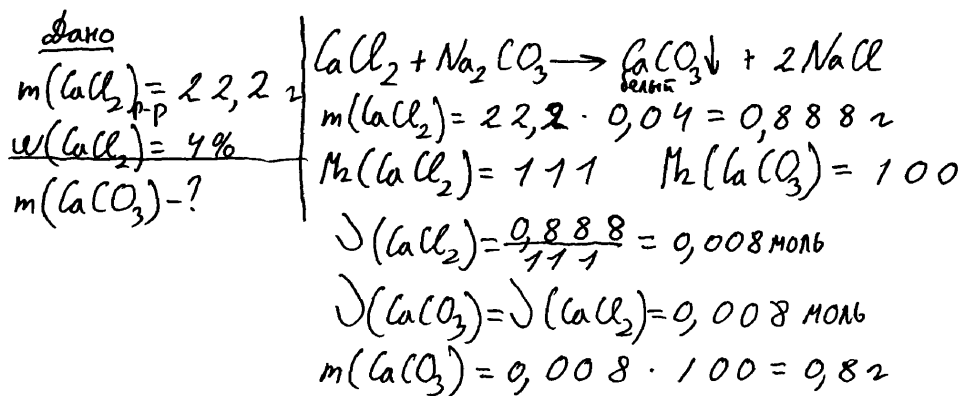 Дано
m(CaCl₂)р-р = 22,2 г
w(CaCl₂) = 4%
m(CaCO₃) - ?
CaCl₂ + Na₂CO₃ → CaCO₃↓ + 2NaCl
белый
m(CaCl₂) = 22,2 · 0,04 = 0,888 г
Mr(CaCl₂) = 111 Mr(CaCO₃) = 100
ν(CaCl₂) = 0,888/111 = 0,008 моль
ν(CaCO₃) = ν(CaCl₂) = 0,008 моль
m(CaCO₃) = 0,008 · 100 = 0,8 г